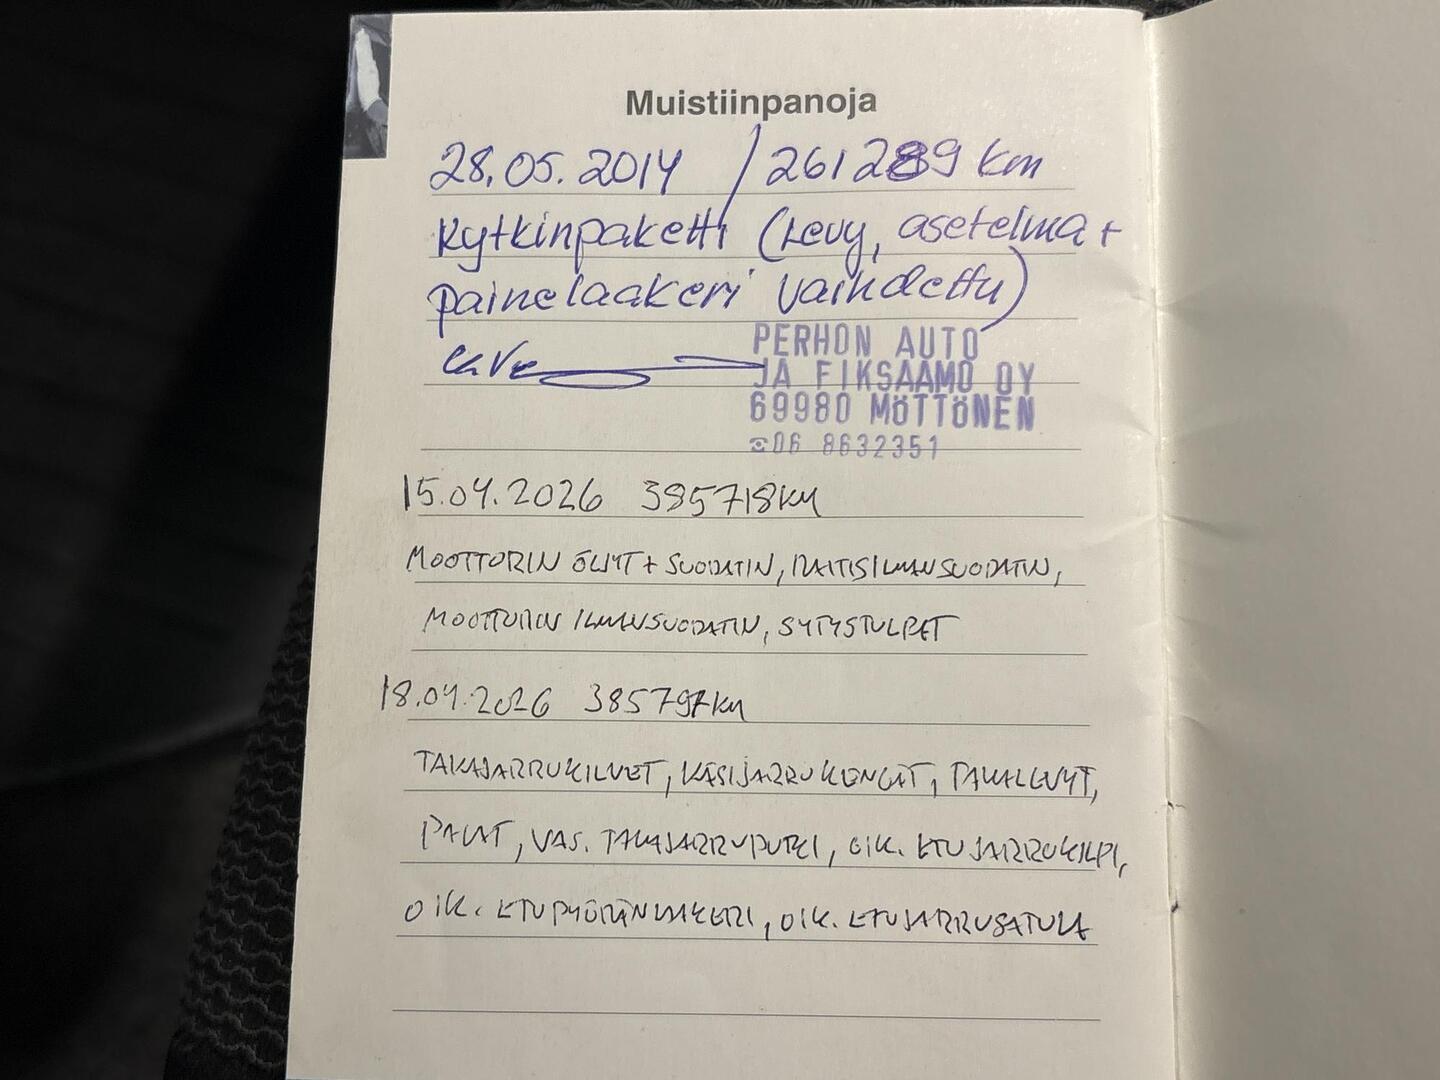 Muistiinpanoja
28.05.2014 / 261289 km
Kytkinpaketti (Levy, asetelma +
painelaakeri vaihdettu)
PERHON AUTO
JA FIKSAAMO OY
69980 MÖTTÖNEN
☎06 8632351
15.04.2026 385718KM
MOOTTORIN ÖLJYT + SUODATIN, RAITISILMANSUODATIN,
MOOTTORIN ILMANSUODATIN, SYTYSTULPET
18.04.2026 385797KM
TAKAJARRUKILVET, KÄSIJARRUKENGÄT, TAKALEVYT,
PALAT, VAS. TAKAJARRUPUTKI, OIK. ETUJARRUKILPI,
OIK. ETUPYÖRÄNLAAKERI, OIK. ETUJARRUSATULA